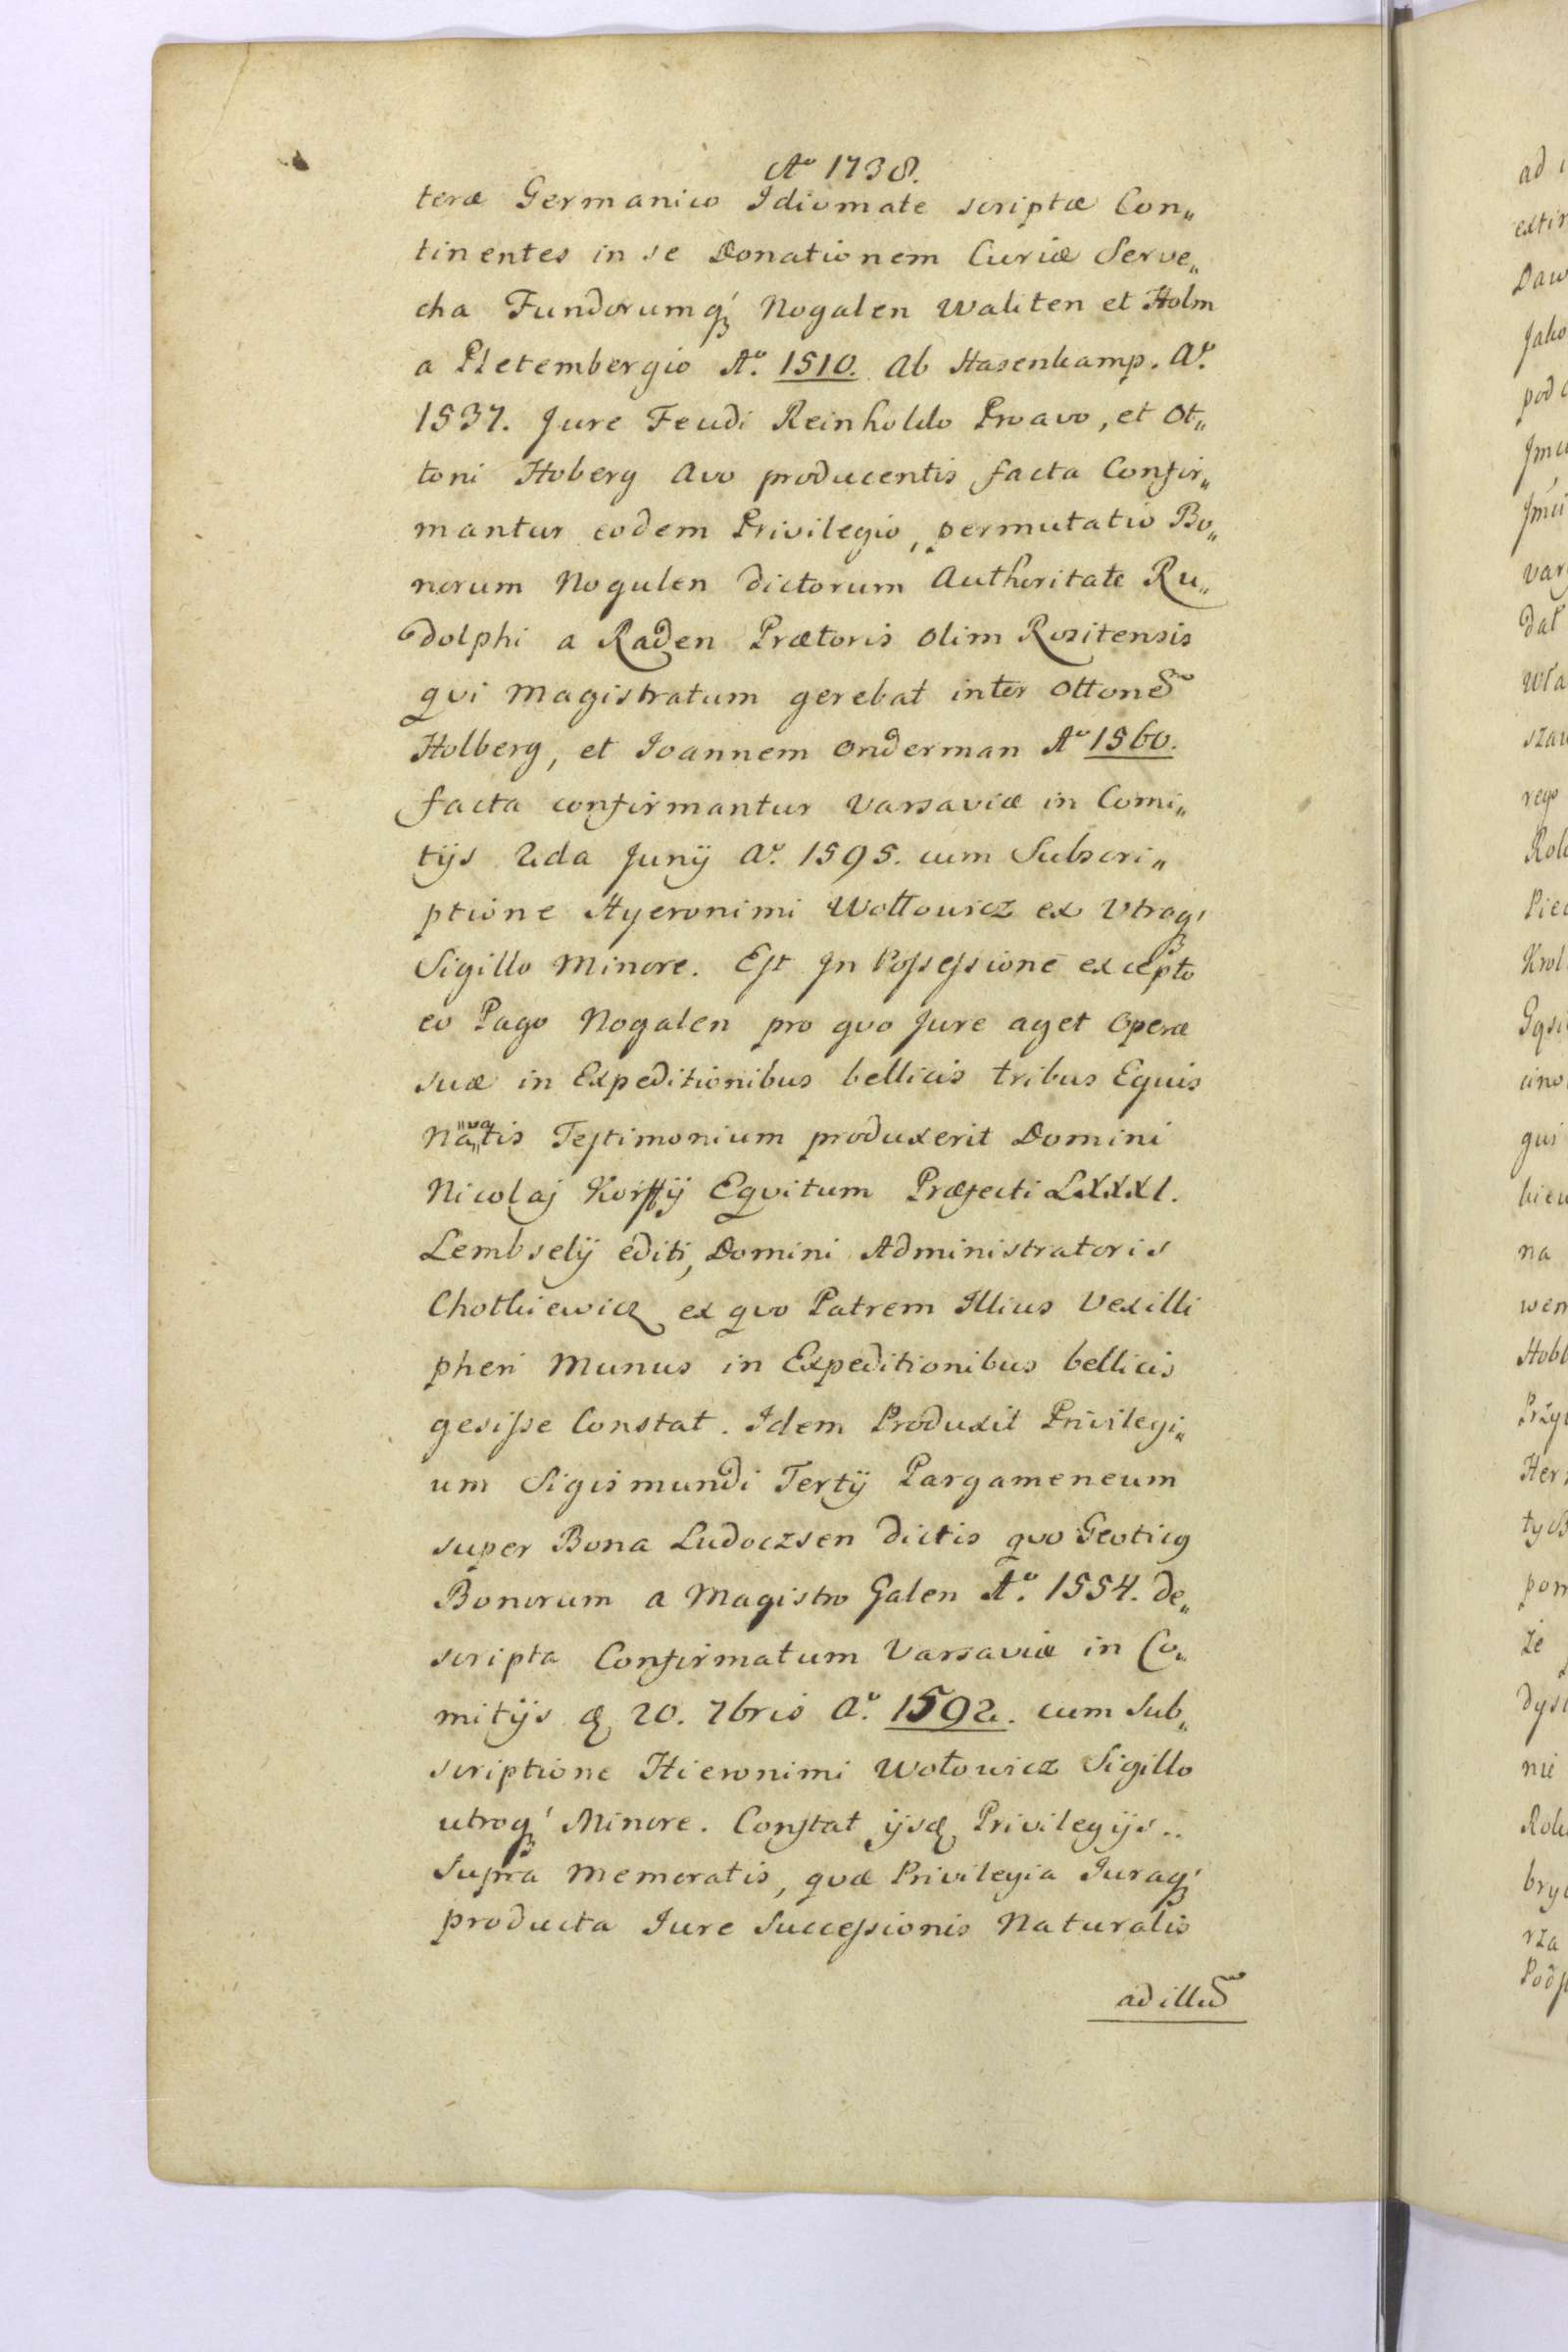 Ao 1738.
teræ Germanico Idiomate scriptæ Con„
tinentes in se Donationem Curiæ Serve„
cha Fundorumq́ꝫ Nogalen Waliten et Holm
a Pletembergio Ao. 1510. Ab Hasenkamp. Ao.
1537. Jure Feudi Reinholdo Proavo, et Ot„
toni Hoberg Avo producentis facta Confir„
mantur eodem Privilegio, permutatio Bo„
norum Nogulen dictorum Authoritate Ru„
dolphi a Raden Prætoris olim Rositensis
qvi Magistratum gerebat inter Ottonem
Holberg, et Joannem Onderman Ao 1560.
facta confirmantur Varsaviæ in Comi„
tijs 2da Junij Ao. 1595. cum Subscri„
ptione Hyeronimi Wołłowicz ex Utraq́ꝫ
Sigillo Minore. Est Jn Possessione excepto
eo Pago Nogalen pro qvo Jure aget Operæ
suæ in Expeditionibus bellicis tribus Equis
Na„va„tis Testimonium produxerit Domini
Nicolaj Korffij Eqvitum Præfecti LXXXI.
Lembselij editi, Domini Administratoris
Chotkiewicz ex qvo Patrem Illius Vexilli
pheri Munus in Expeditionibus bellicis
gesisse Constat. Idem Produxit Privilegi„
um Sigismundi Tertij Pargameneum
super Bona Ludoczsen dictis qvo Geoticq
Bonorum a Magistro Galen Ao. 1554. de„
scripta Confirmatum Varsaviæ in Co„
mitijs d. 20. 7bris Ao. 1592. cum Sub„
scriptione Hieronimi Wołowicz Sigillo
utroq́ꝫ Minore. Constat ijsd. Privilegijs..
Supra Memoratis, qvæ Privilegia Juraq́ꝫ
producta Jure Successionis Naturalis
ad illum